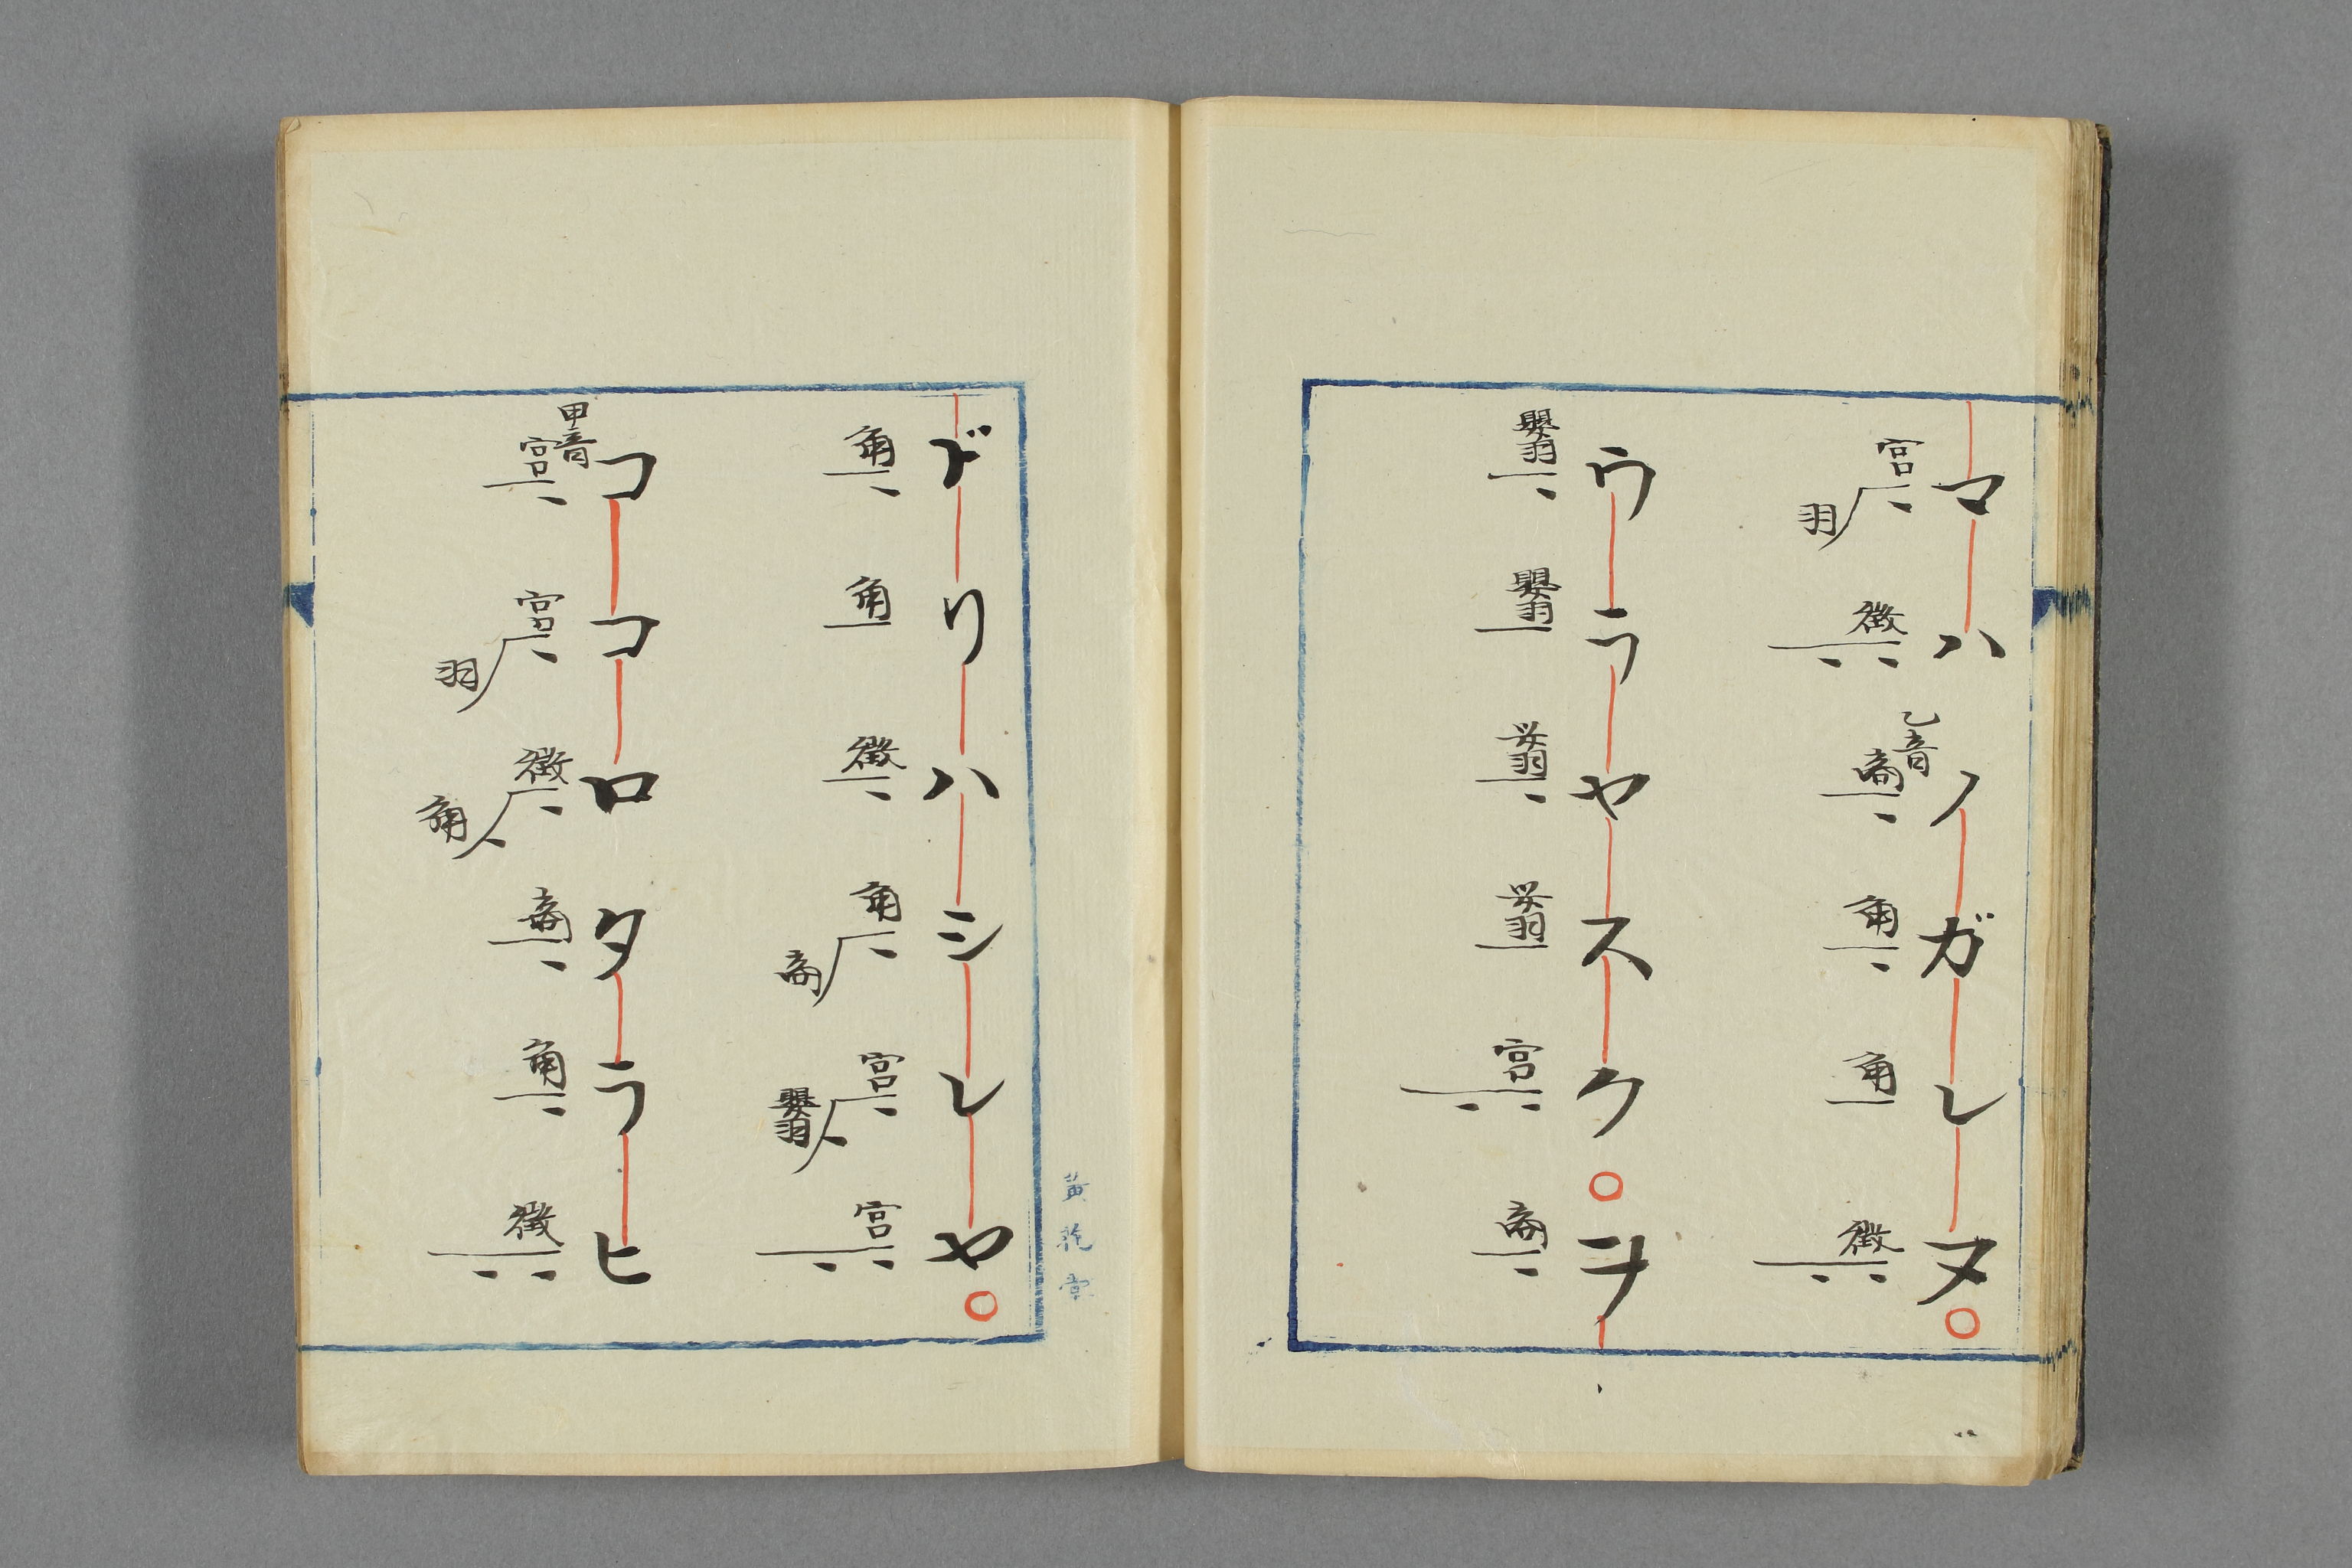 マハノガレヌ○
宮羽徴乙音商角角徴
ウラヤスク○ヲ
嬰羽嬰羽嬰羽嬰羽宮商
ドリハシレヤ○
角角徴角商宮嬰羽宮
コヽロタラヒ
甲音宮宮羽徴角商角徴